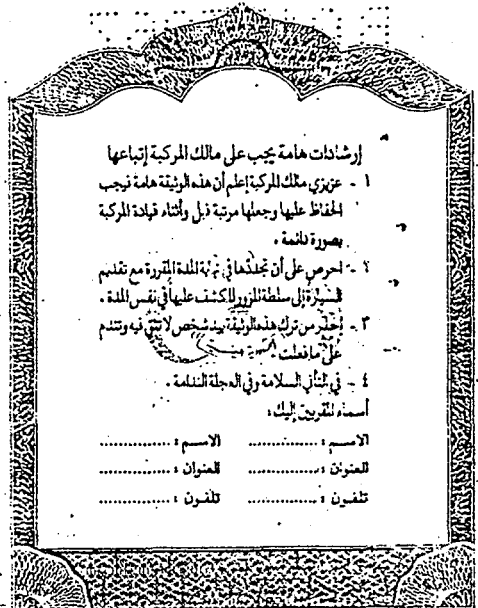 إرشادات هامة يجب على مالك المركبة إتباعها
١ - عزيزي مالك المركبة إعلم أن هذه الوثيقة هامة فيجب
الحفاظ عليها وجعلها مرتبة قبل وأثناء قيادة المركبة
بصورة دائمة .
٢ - احرص على أن تجددها في نهاية المدة المقررة مع تقديم
السيارة إلى سلطة المرور للكشف عليها في نفس المدة .
٣ - إحذر من ترك هذه الوثيقة بيد شخص لا تثق فيه وتندم
على ما فعلت
٤ - في التأني السلامة وفي العجلة الندامة .
أسماء المقربين إليك :
الاسم : .............. الاسم : ..............
العنوان : .............. العنوان : ..............
تلفون : .............. تلفون : ..............